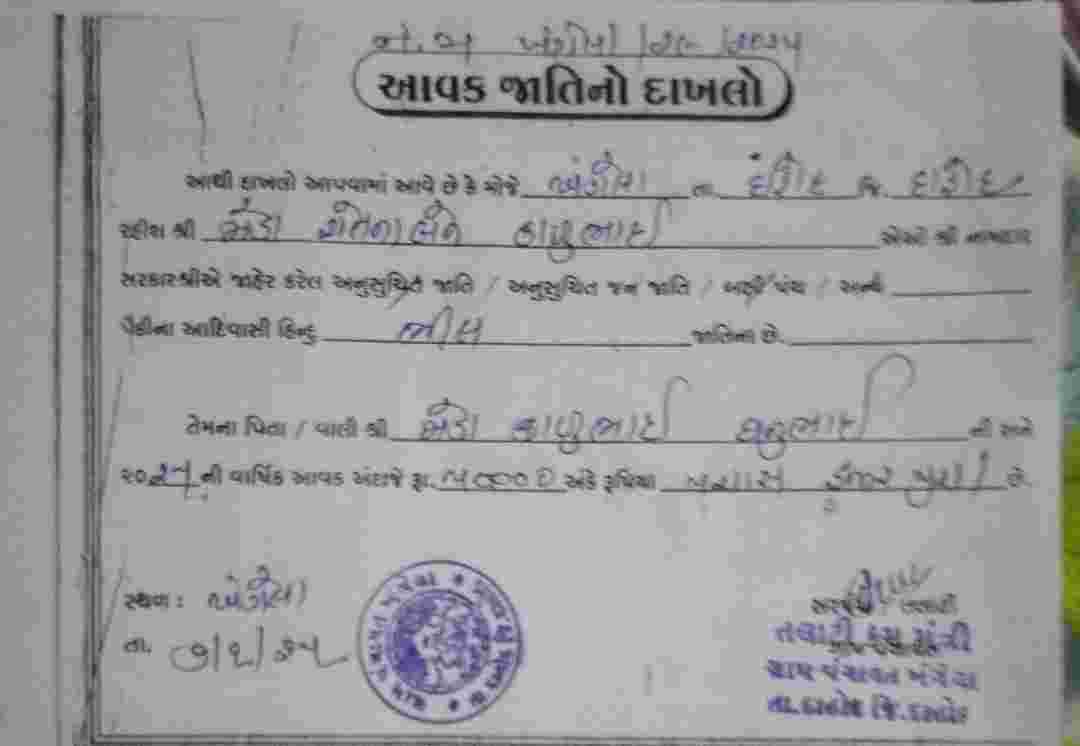 આવક જાતિનો દાખલો
આથી દાખલો આપવામાં આવે છે કે મોજે ખંગેલા તા. દાહોદ જિ. દાહોદ
રહીશ શ્રી કાળુભાઈ એઓ શ્રી નામદાર
સરકારશ્રીએ જાહેર કરેલ અનુસુચિત જાતિ / અનુસુચિત જન જાતિ / બક્ષી પંચ / અન્ય
પૈકીના આદિવાસી હિન્દુ ભીલ જાતિના છે.
તેમના પિતા / વાલી શ્રી કાળુભાઈ ની સને
૨૦૨૫ ની વાર્ષિક આવક અંદાજે રૂા. ૫૦૦૦૦ અંકે રૂપિયા પચાસ હજાર પુરા છે.
સ્થળ : ખંગેલા
તા.
સરપંચ / તલાટી
તલાટી કમ મંત્રી
ગ્રામ પંચાયત ખંગેલા
તા.દાહોદ જિ.દાહોદ